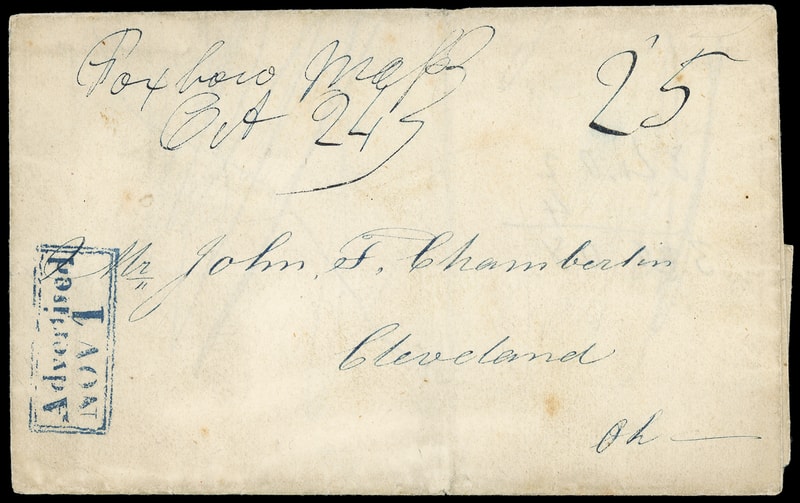 Foxboro Mass
Oct 24
25
Mr John F. Chamberlin
Cleveland
Oh
Advertised
NOV 1